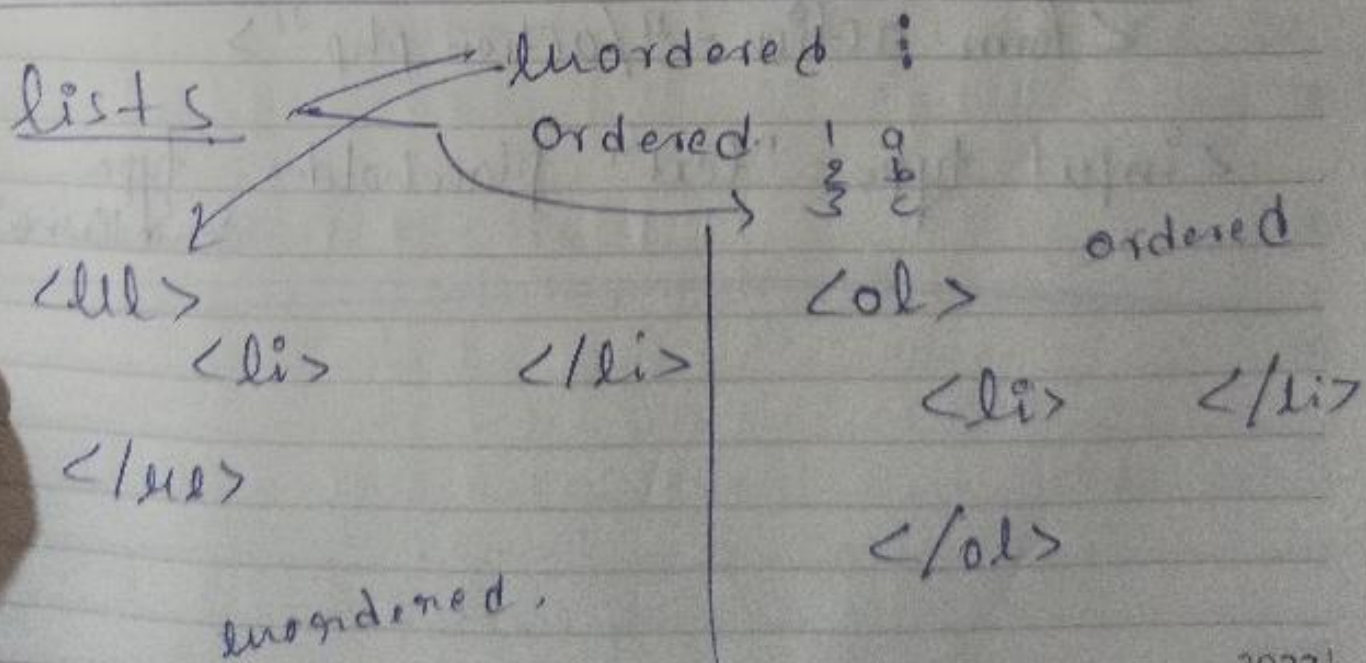 lists
unordered :
Ordered 1 a
2 b
3 c
<ul>
<li> </li>
</ul>
unordered.
ordered
<ol>
<li> </li>
</ol>